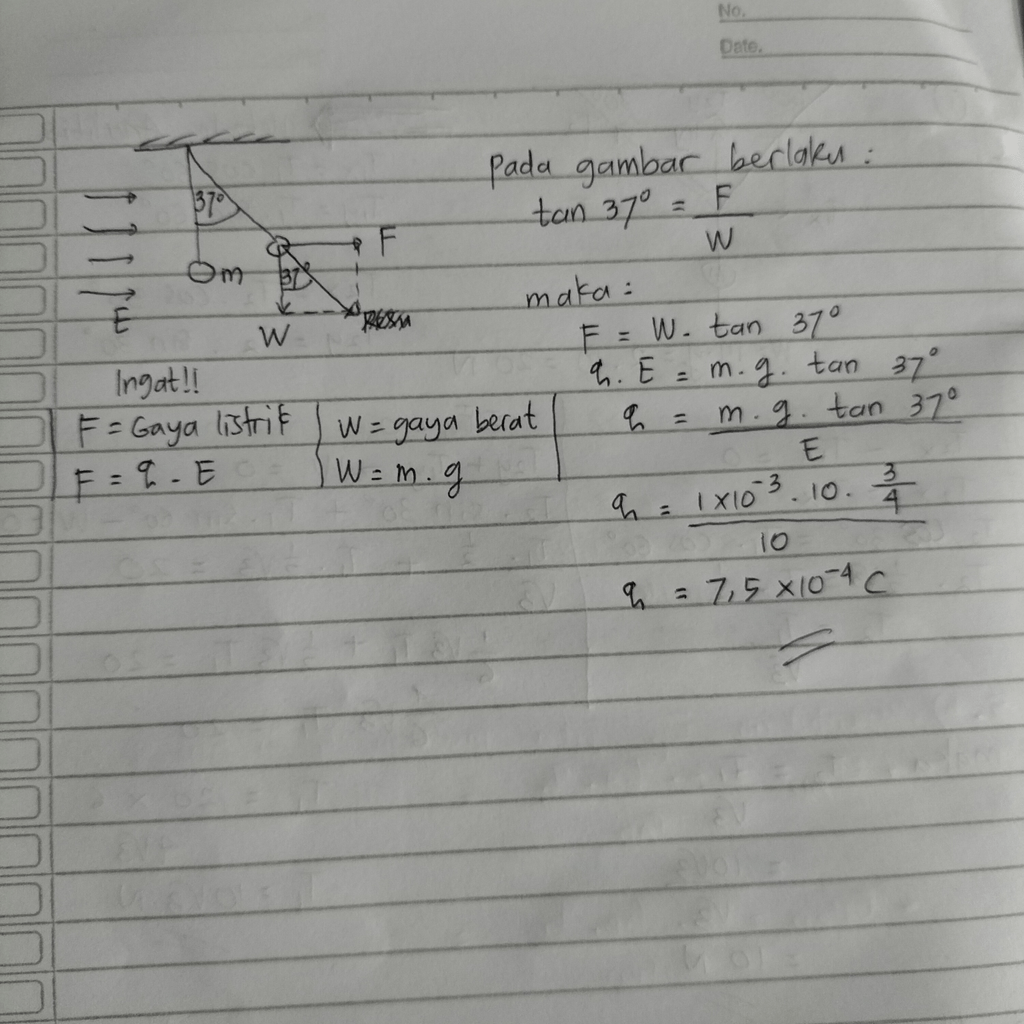 No.
Date.
37°
m
E
37°
F
W
Pada gambar berlaku :
tan 37° = F / W
maka :
F = W. tan 37°
q. E = m. g. tan 37°
q = m. g. tan 37° / E
q = 1 x 10⁻³ . 10 . 3/4 / 10
q = 7,5 x 10⁻⁴ C
Ingat!!
F = Gaya listrik
F = q . E
W = gaya berat
W = m. g